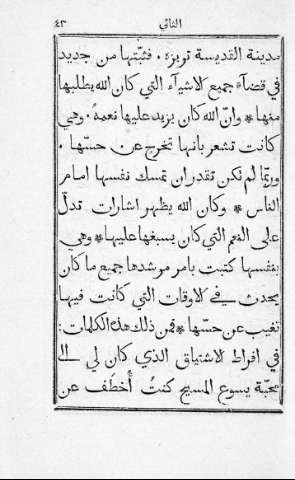 الثاني ٤٣
مدينة القديسة تريزة . فثبّتها من جديد
في قضآء جميع الاشيآء التي كان الله يطلبها
منها * وانّ الله كان يزيد عليها نعمهُ . وهي
كانت تشعر بانها تخرج عن حسّها .
وربّما لم تكن تقدر ان تمسك نفسها امام
الناس * وكان الله يظهر اشارات تدلّ
على النعم التي كان يسبغها عليها * وهي
بنفسها كتبت بامر مرشدها جميع ما كان
يحدث في الاوقات التي كانت فيها
تغيب عن حسّها * فمن ذلك هذه الكلمات :
في افراط الاشتياق الذي كان لي الى
محبّة يسوع المسيح كنتُ أُخطَف عن